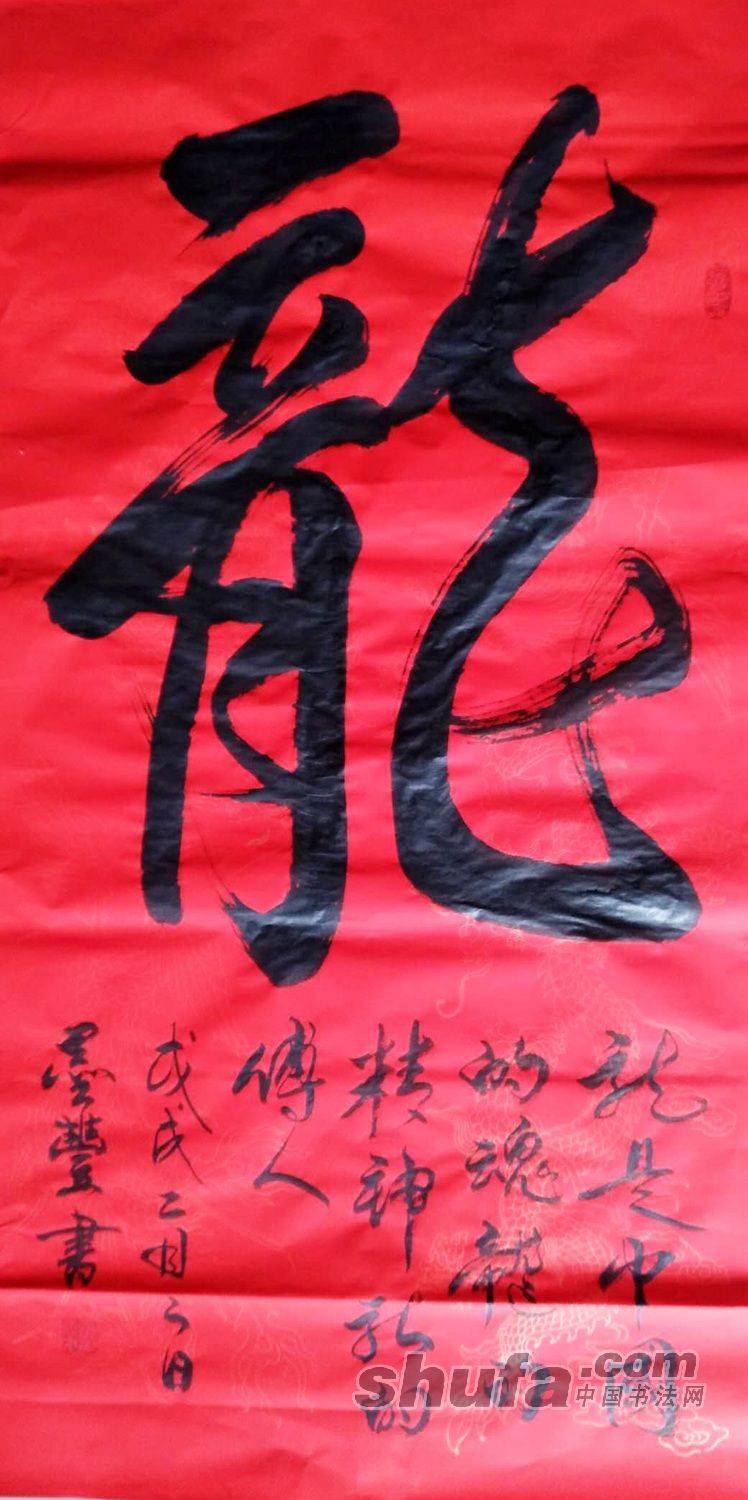 龍
龍是中國
的魂龍的
精神龍的
傳人
戊戌二月二日
墨豐書
shufa.com
中国书法网